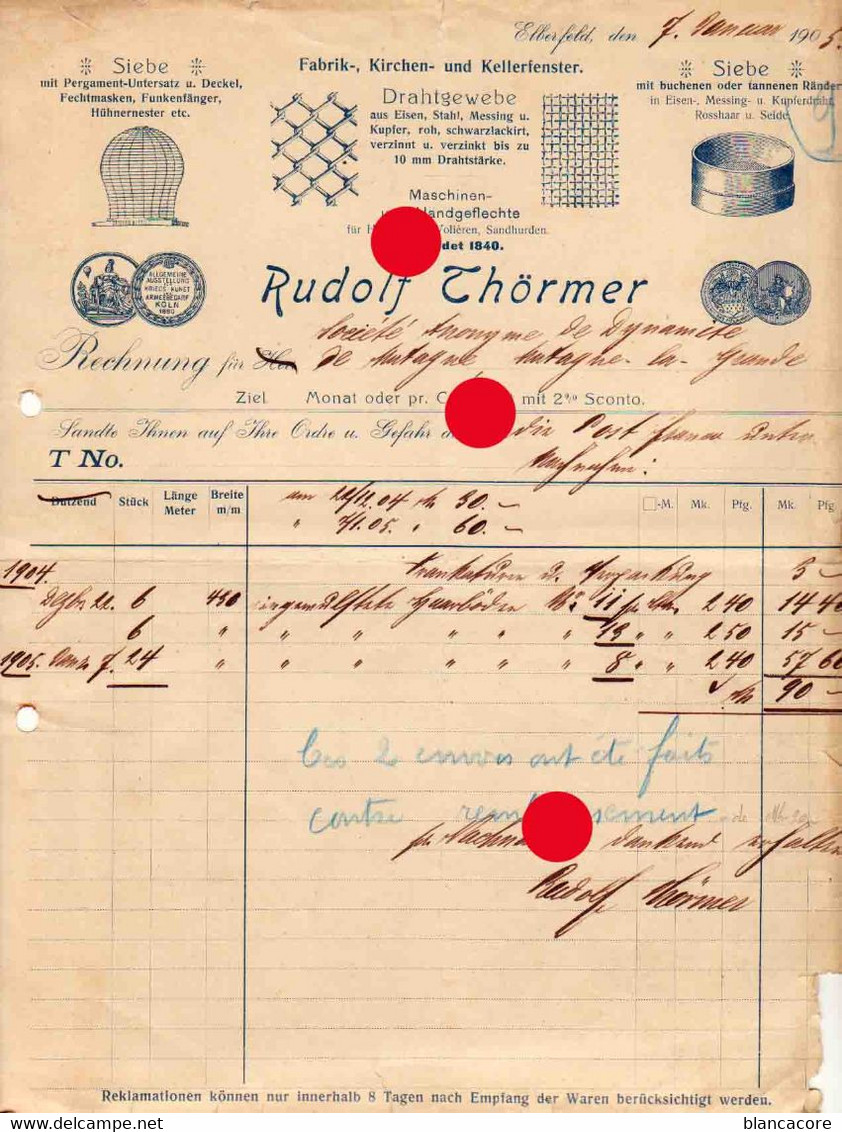 Elberfeld, den 7. Januar 1905.
Siebe
mit Pergament-Untersatz u. Deckel,
Fechtmasken, Funkenfänger,
Hühnernester etc.
Fabrik-, Kirchen- und Kellerfenster.
Drahtgewebe
aus Eisen, Stahl, Messing u.
Kupfer, roh, schwarzlackirt,
verzinnt u. verzinkt bis zu
10 mm Drahtstärke.
Maschinen-
Handgeflechte
für Volièren, Sandhurden.
1840.
Siebe
mit buchenen oder tannenen Ränder
in Eisen-, Messing- u. Kupferdraht,
Rosshaar u. Seide
ALLGEMEINE
AUSSTELLUNG
KRIEGS-KUNST
ARMEEBEDARF
KÖLN
1890
Rudolf Thörmer
Société Anonyme de Dynamite
Rechnung für Herr de Matagne Matagne-la-Grande
Ziel Monat oder pr. mit 2% Sconto.
Sandte Ihnen auf Ihre Ordre u. Gefahr die Post franco unter
T No. Nachnahme:
Dutzend Stück Länge Meter Breite m/m □-M. Mk. Pfg. Mk. Pfg.
am 22/12.04 Mk 30.-
" 7/1.05. " 60.-
1904. Frankaturen u. Verpackung 3 -
Dezbr. 22. 6 430 Haarböden No. 11 2 40 14 40
6 " " " " " " 13 " " 2 50 15 -
1905. Janr. 7. 24 " " " " " " 8 " " 2 40 57 60
Mk 90 -
Ces 2 envois ont été faits
contre de Mk 30
per dankend erhalten
Rudolf Thörmer
Reklamationen können nur innerhalb 8 Tagen nach Empfang der Waren berücksichtigt werden.
blancacore